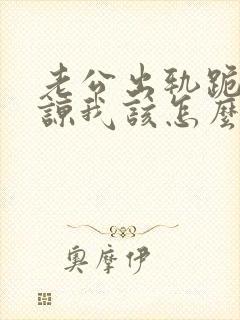 老公出轨跪
谅我该怎麽
奥摩伊